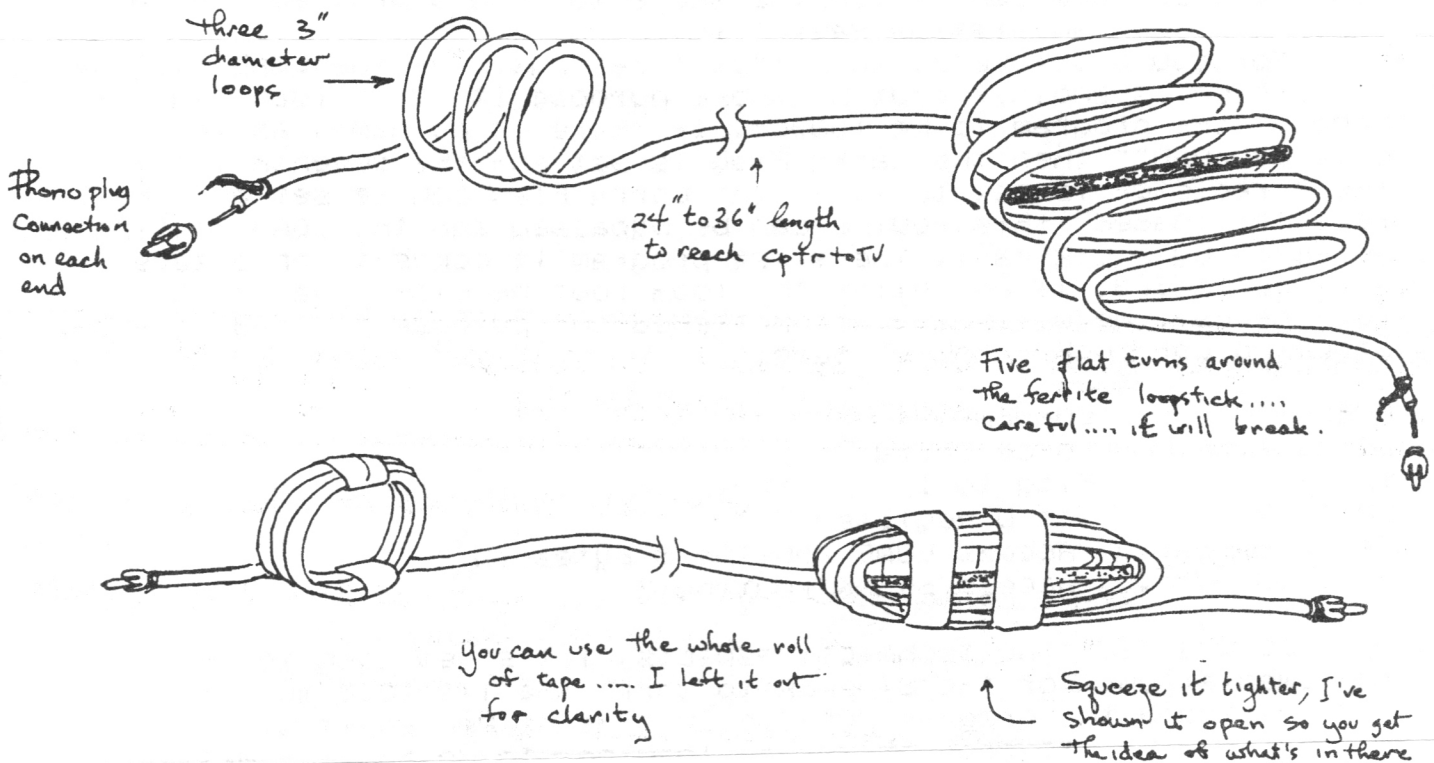 Three 3"
diameter
loops
Phono plug
Connection
on each
end
24" to 36" length
to reach cptr to TV
Five flat turns around
the ferrite loopstick....
Careful.... it will break.
you can use the whole roll
of tape ..... I left it out
for clarity
Squeeze it tighter, I've
shown it open so you get
the idea of what's in there